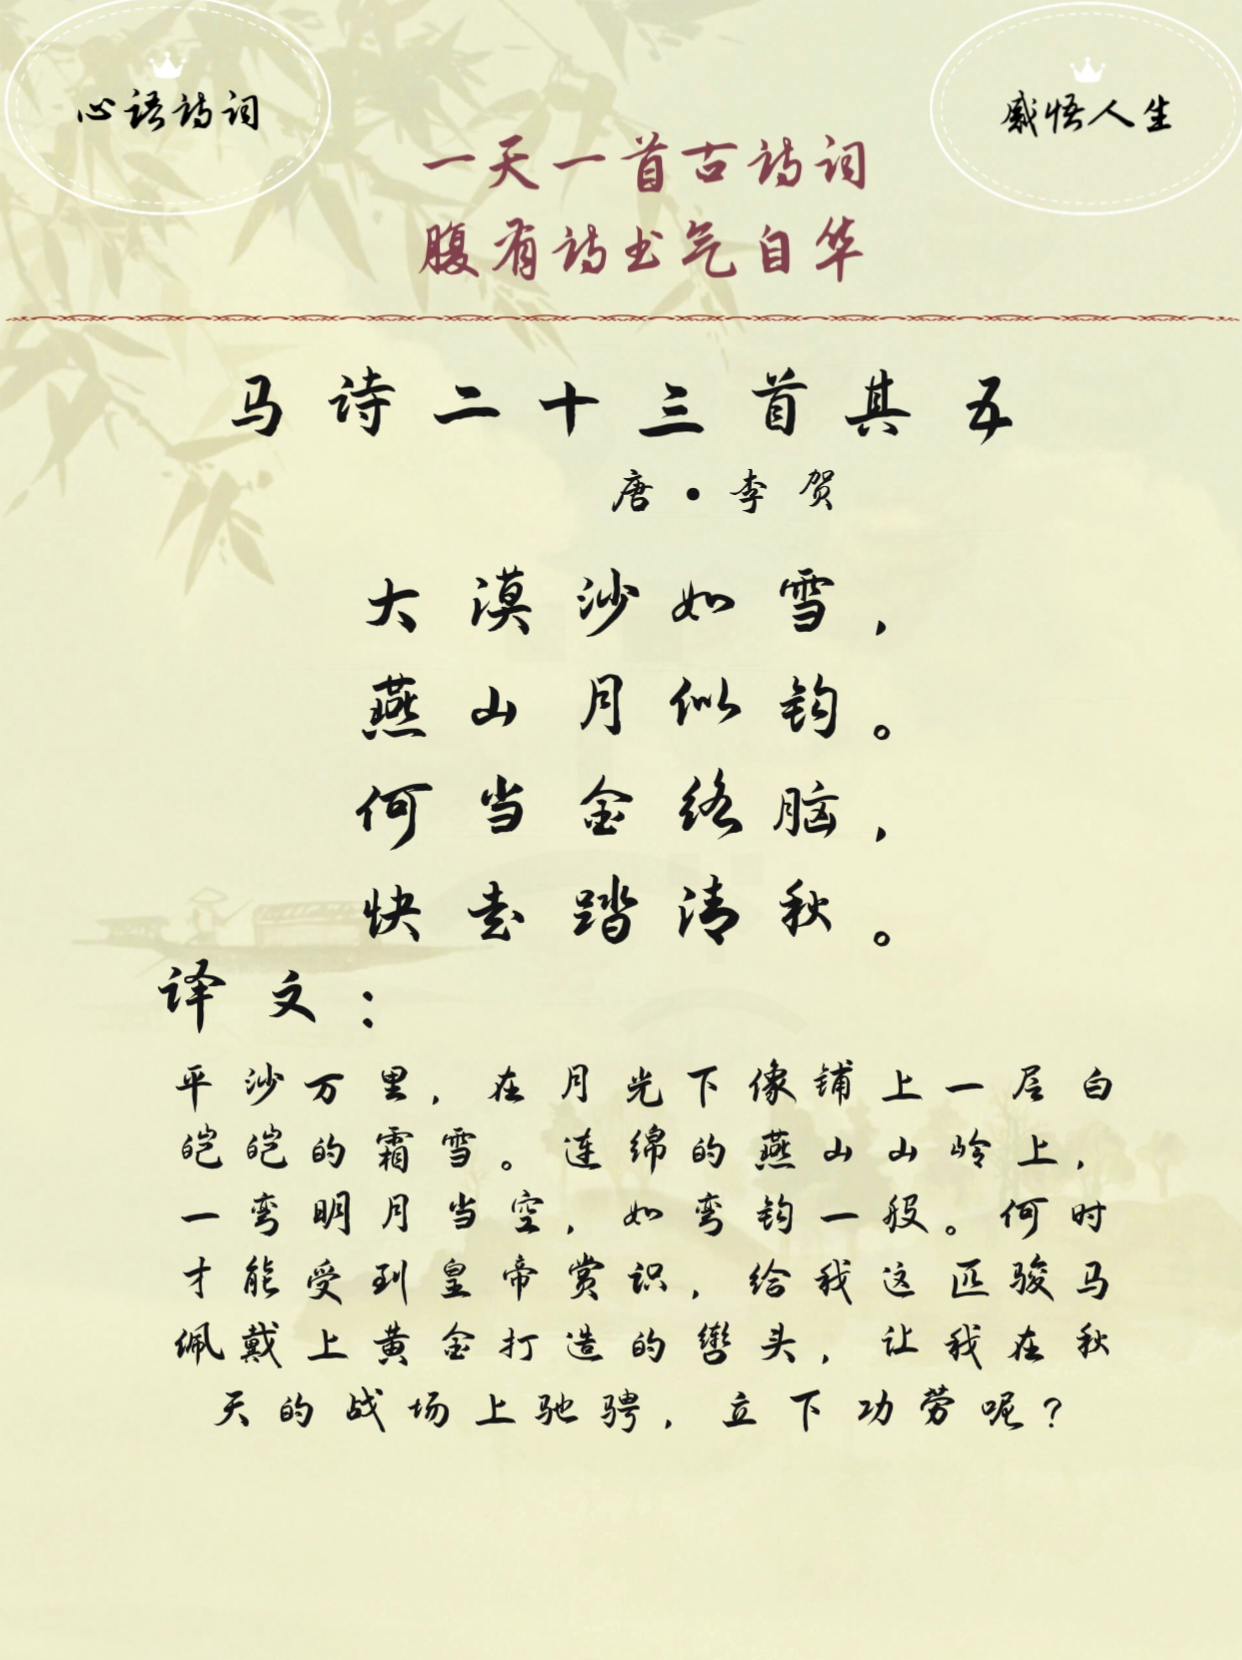 心语诗词
感悟人生
一天一首古诗词
腹有诗书气自华
马诗二十三首其五
唐·李贺
大漠沙如雪，
燕山月似钩。
何当金络脑，
快去踏清秋。
译文：
平沙万里，在月光下像铺上一层白
皑皑的霜雪。连绵的燕山山岭上，
一弯明月当空，如弯钩一般。何时
才能受到皇帝赏识，给我这匹骏马
佩戴上黄金打造的辔头，让我在秋
天的战场上驰骋，立下功劳呢？